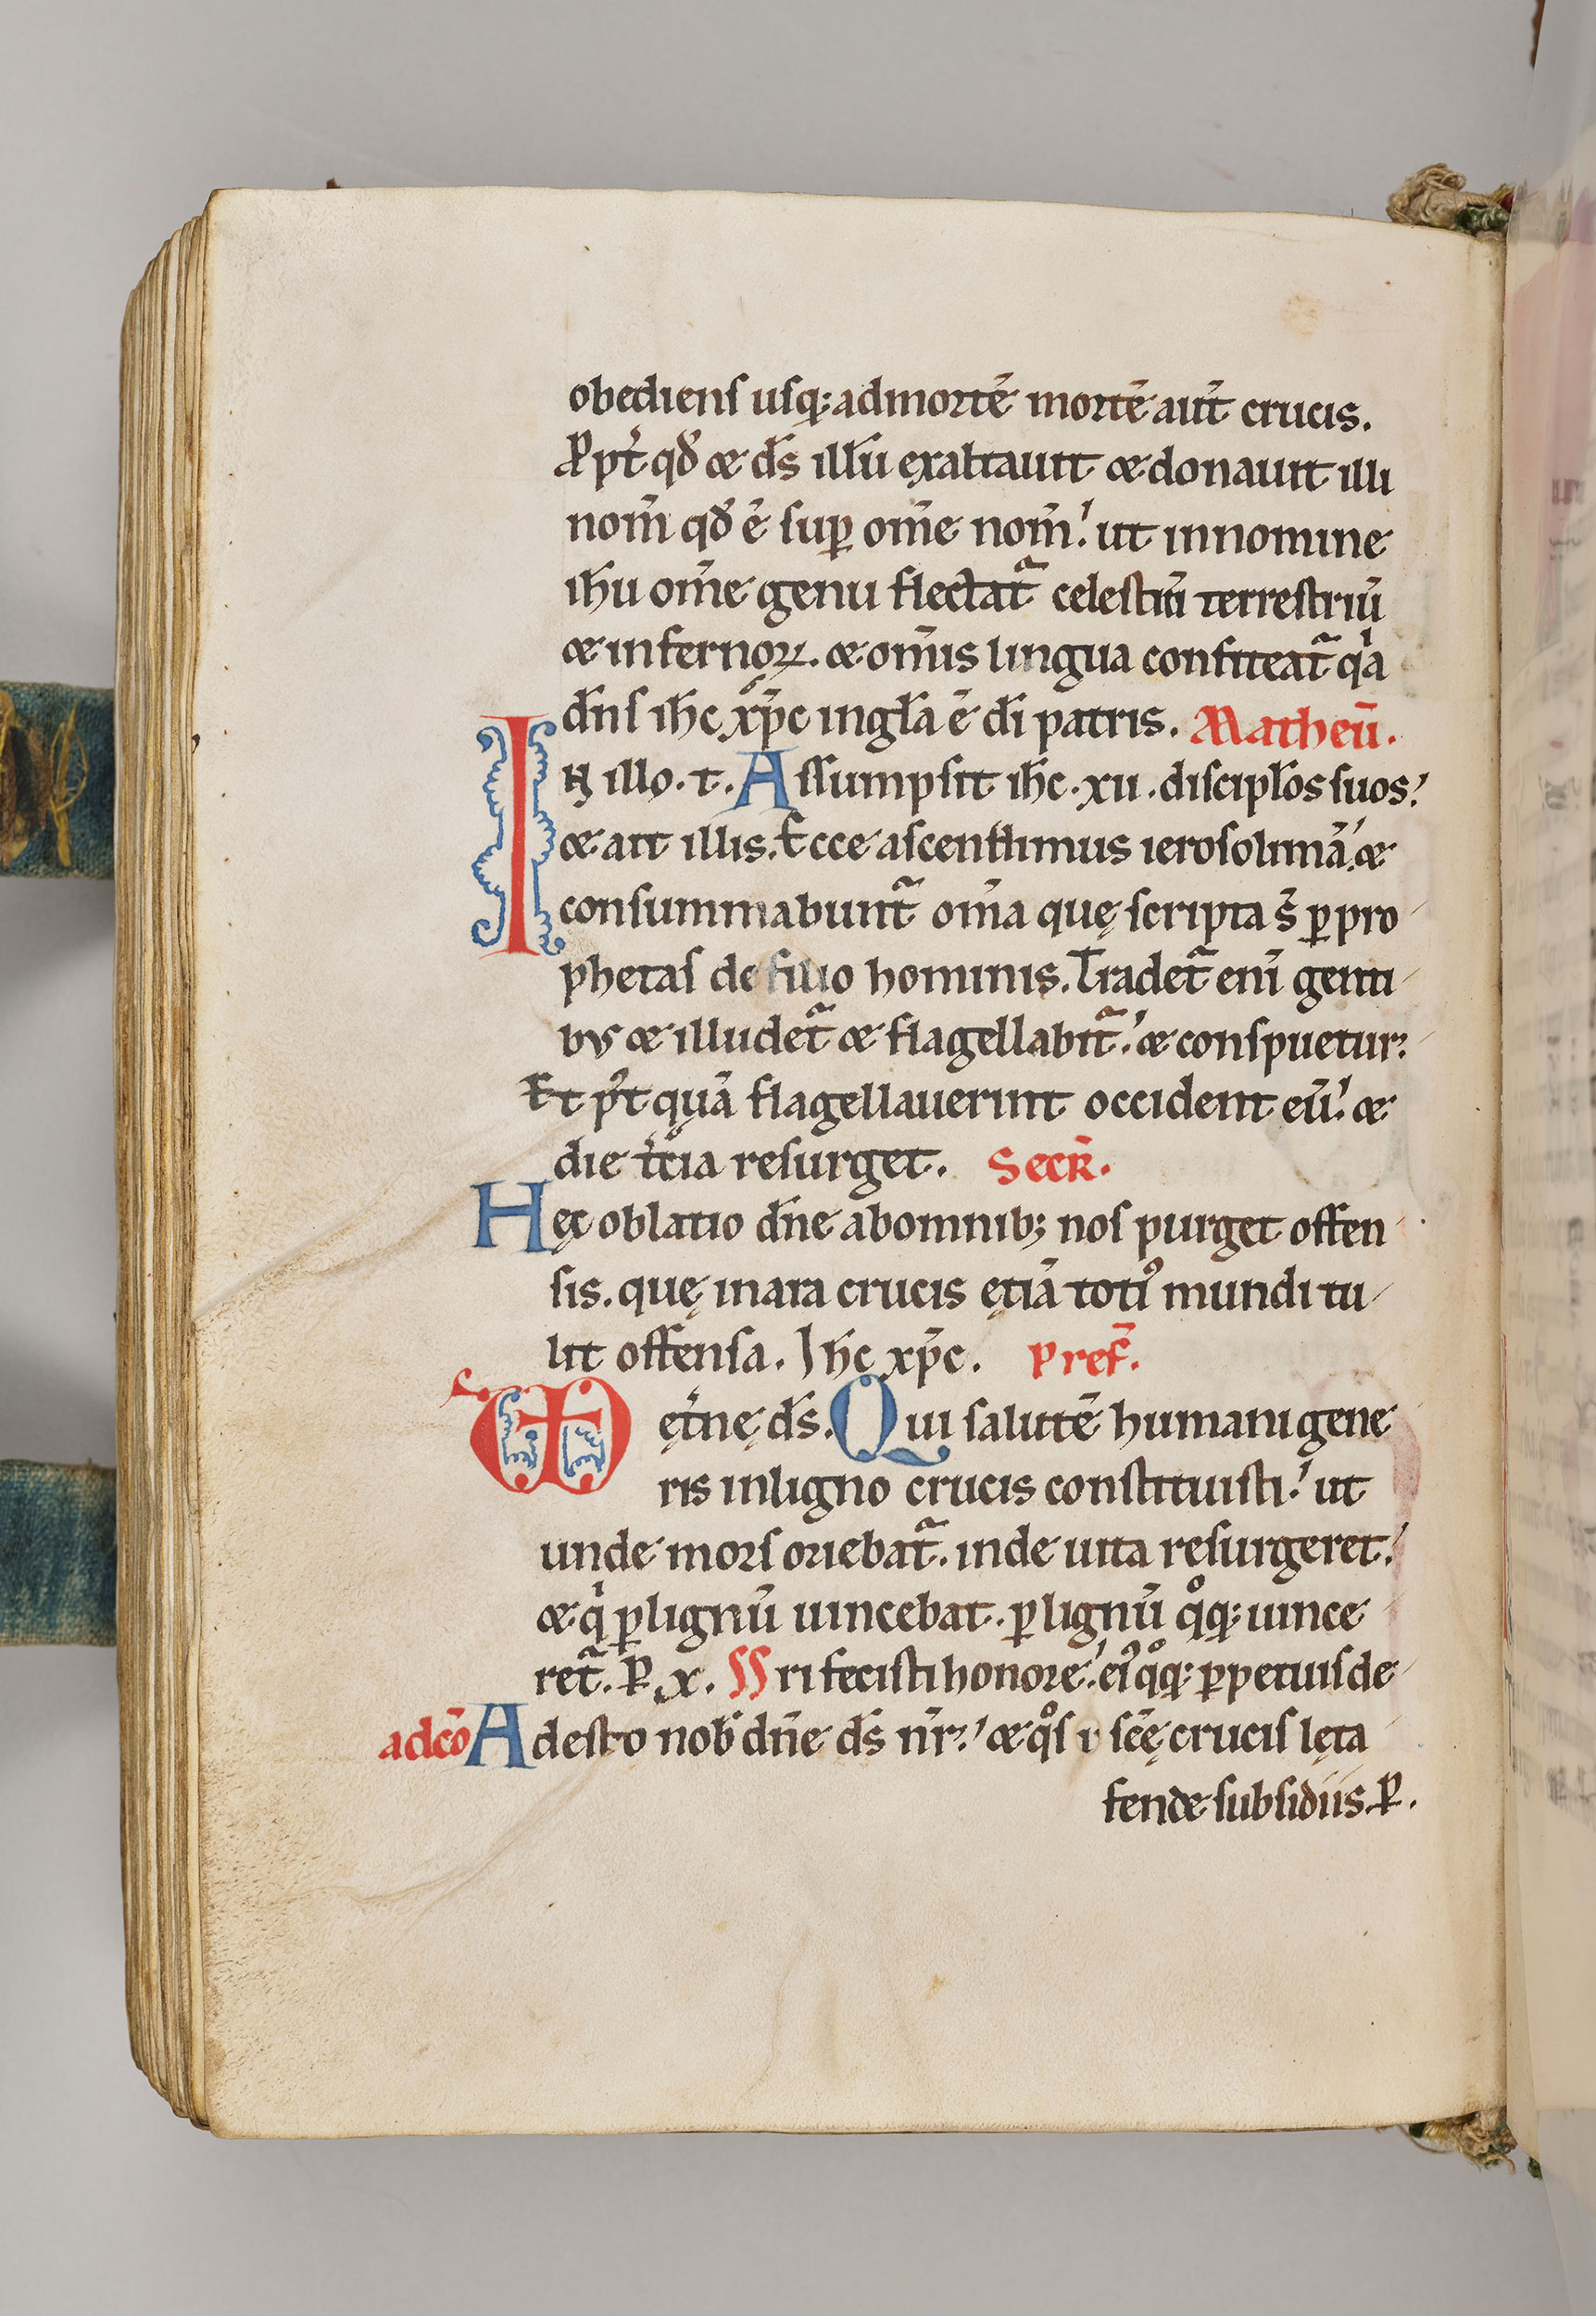 obediens usq; ad mortē mortē aut̄ crucis.
Ꝓpt̾ qđ & d̄s illū exaltauit & donauit illi
nom̄ qđ ē sup̱ om̄e nom̄. ut in nomine
ih̄u om̄e genu flectat̃ celestiū terrestriū
& infernoꝝ. & om̄is lingua confiteat̃ qa
dn̄s ih̄c xp̄c in gl̄a ē dī patris. Matheū.
IN illo. t. Assumpsit ih̄c .xii. discipl̄os suos.
& ait illis. Ecce ascendimus ierosolimā. &
consummabunt̃ om̄ia quę scripta s̄ ꝑ pro
phetas de filio hominis. Tradet̃ eni genti
bus & illudet̃ & flagellabit̃. & conspuetur.
Et p't quā flagellauerint occident eū. &
die t̾cia resurget. Secr̄.
Hęc oblatio dn̄e ab omnib; nos purget offen
sis. quę in ara crucis etiā toti᾽ mundi tu
lit offensa. Ih̄c xp̄c. Pref̄.
VD ęt̾nę d̄s. Qui salutē humani gene
ris in ligno crucis constituisti. ut
unde mors oriebat̃. inde uita resurgeret.
& qͥ ꝑ lignū uincebat. ꝑ lignū qͦq; uince
ret̃. P̱ x. SS ri fecisti honore. ei᾽ qͦq; ꝑpetuis de
adcō Adesto nob̄ dn̄e d̄s nr̄. & qͦs scę̄ crucis lęta
fende subsidiis. P̱.